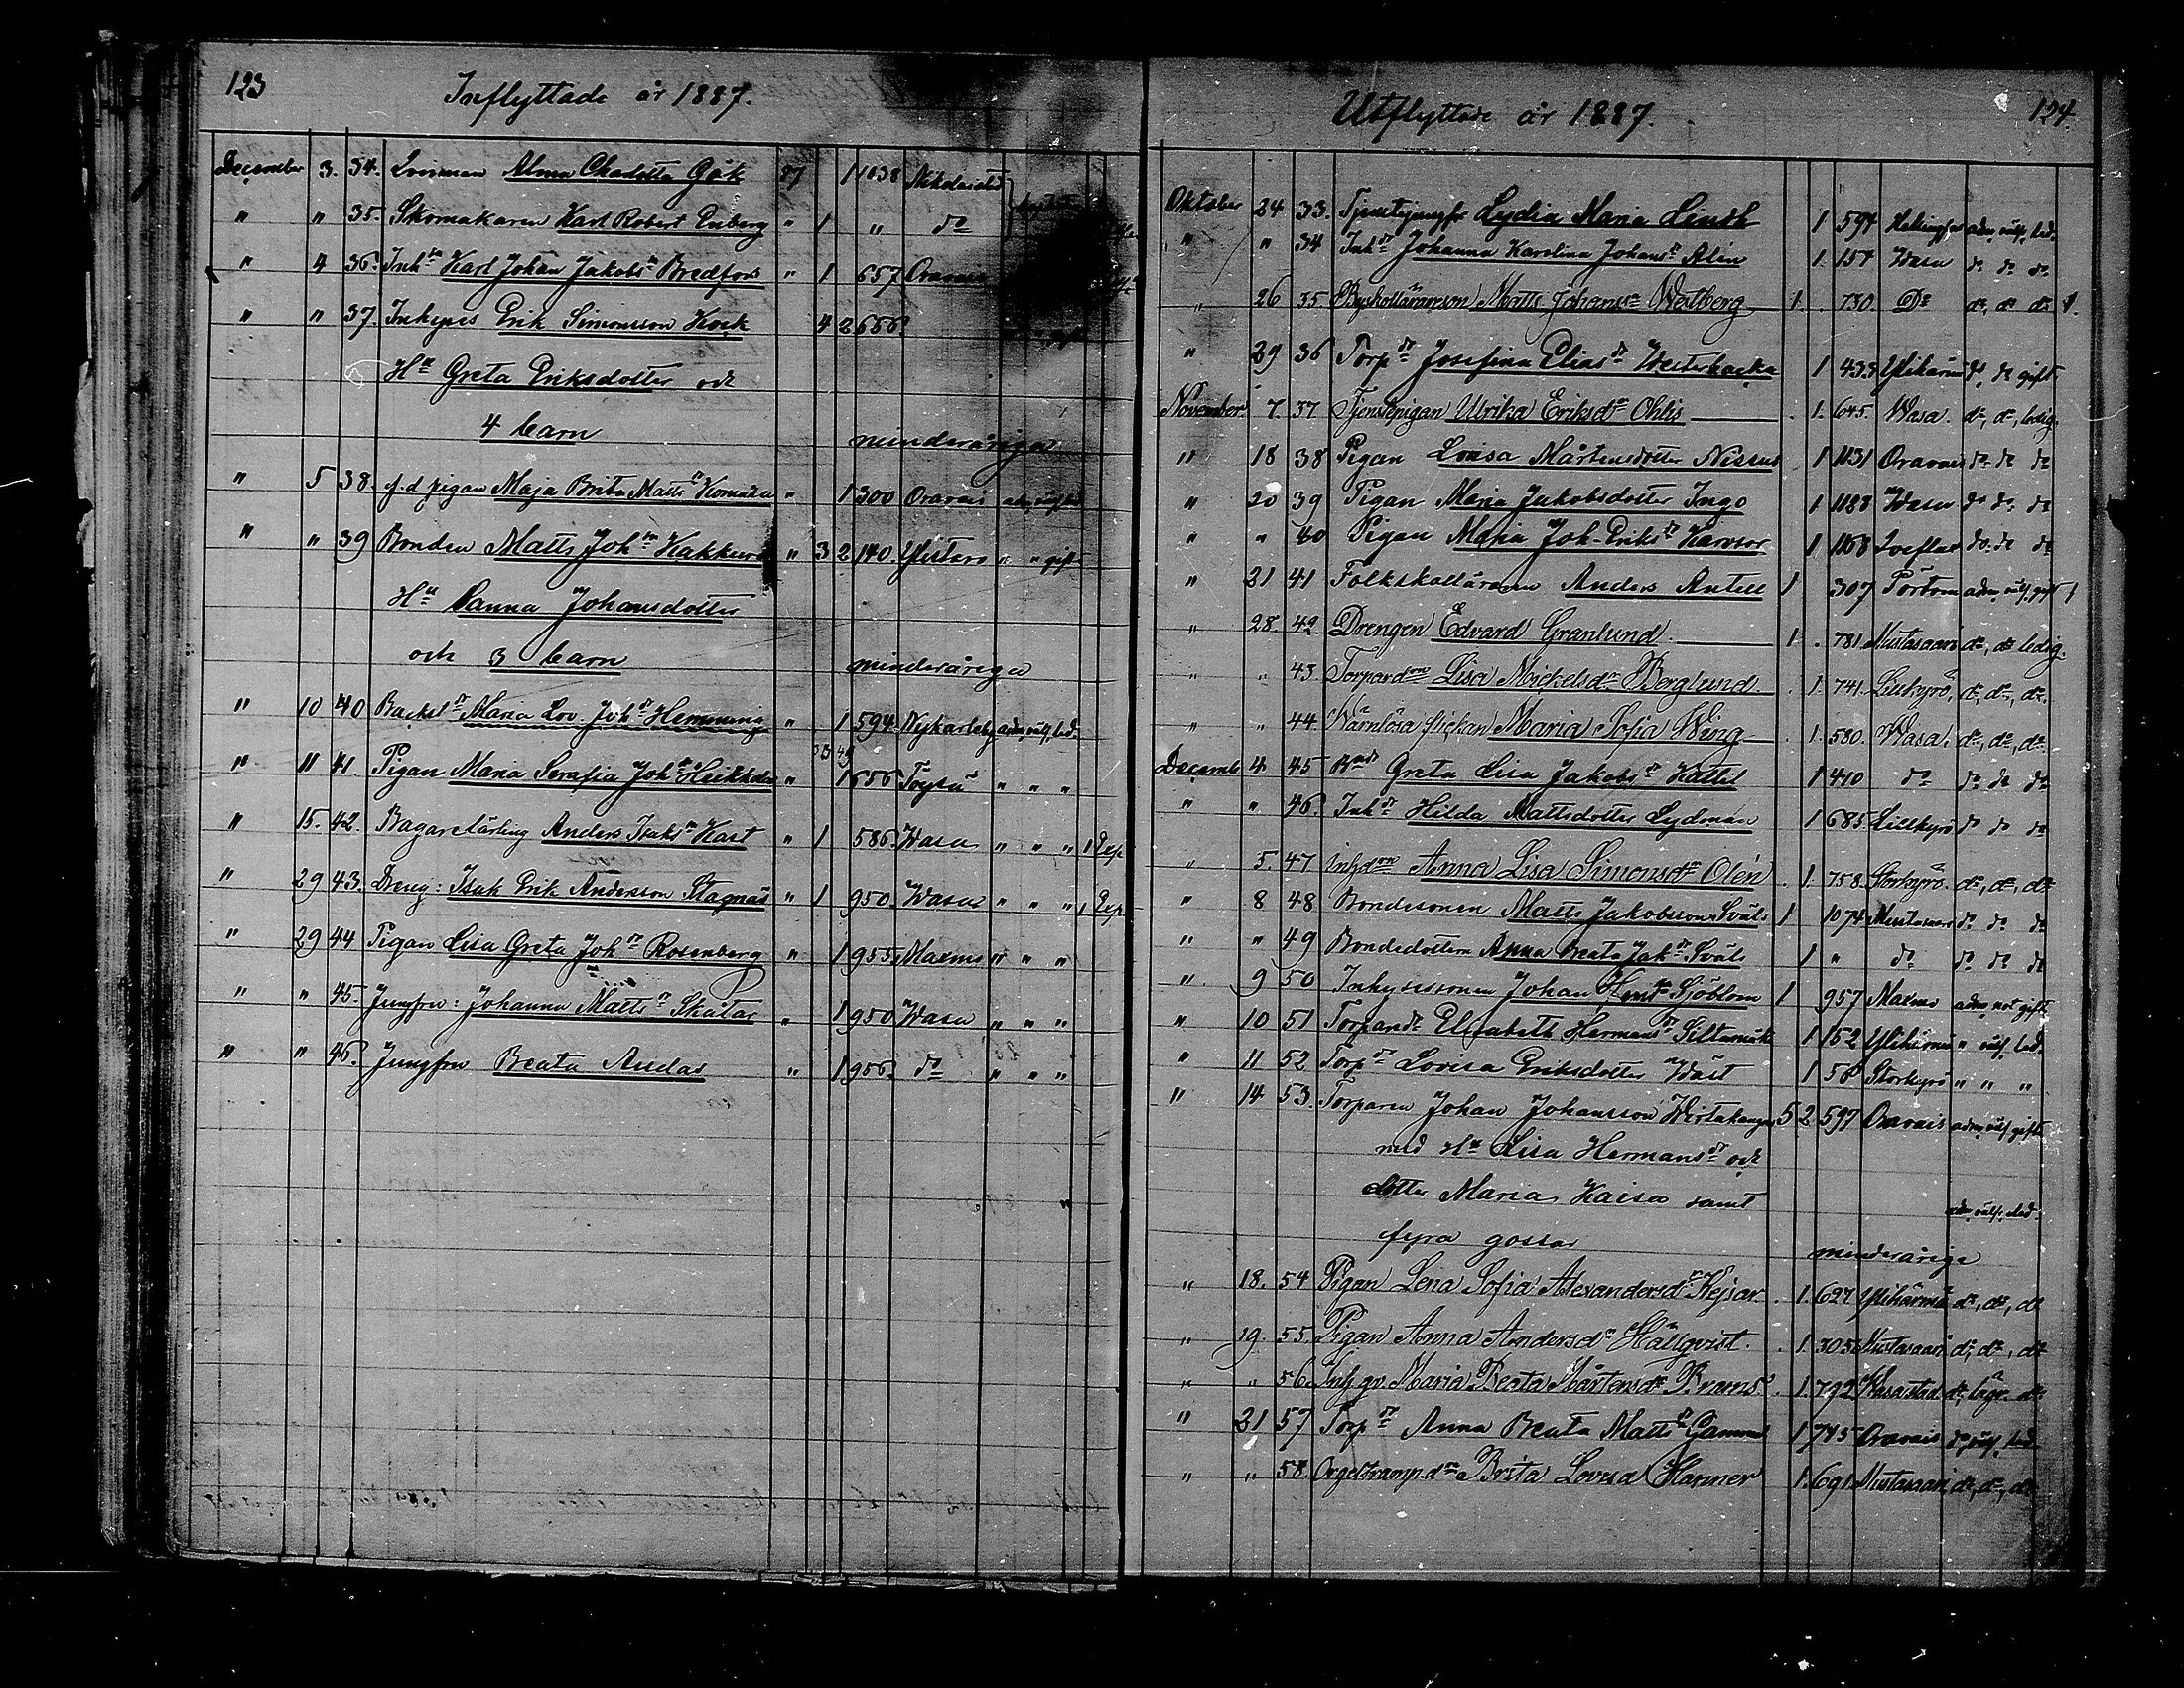 123
Inflyttade år 1887.
December 3. 34. Qvinnan Alma Charlotta Gök 87 1 1038 Nikolaistad
" " 35. Skomakaren Karl Robert Enberg " 1 " do
" 4 36. Inhsn Karl Johan Jakobsn Bredfors " 1 657 Oravais
" " 37. Inhyses Erik Simonsson Kock 4 2 656
Hu Greta Eriksdotter och
4 barn minderåriga
" 5 38. f.d pigan Maja Brita Mattsdr " 1 300 Oravais
" " 39 Bonden Matts Johsn Kakkuri " 3 2 140. Ylistaro " " gift
Hu Sanna Johansdotter
och 3 barn minderåriga
" 10 40 Backstdr Maria Lov. Johdr Hemming " 1 594 Nykarleby adm, välf, led.
" 11 41. Pigan Maria Serafia Johdr Heikkila " 1 656 Töysä " " "
" 15. 42. Bagarelärling Anders Isaksn Kast " 1 586. Wasa " " " 1 Exp
" 29 43. Dreng: Isak Erik Andersson Stagnäs " 1 950. Wasa " " " 1 Exp
" 29 44 Pigan Lisa Greta Johdr Rosenberg " 1 955. Maxmo " " "
" " 45. Jungfrun: Johanna Mattsdr Skåtar " 1 950 Wasa " " "
" " 46. Jungfrun Beata Andas " 1 956. do " " "
124.
Utflyttade år 1887.
Oktober 24 33. Tjenstejungfr Lydia Maria Lindh 1 594 Helsingfors adm, välf, led.
" " 34 Inhdr Johanna Karolina Johansdr Alén 1 157 Wasa do do do
" 26 35. Byskollärareson Matts Johanssn Westberg 1. 730. Do do, do do 1.
" 29 36 Torpdr Josefina Eliasdr Westerbacka 1 433 Ylihärmä do do gift
November 7. 37 Tjenstepigan Ulrika Eriksdr Ohlis 1. 645. Wasa. do, do, ledig.
" 18 38 Pigan Lovisa Mårtensdotter Nissus 1 1131 Oravais do do do
" 20 39 Pigan Maria Jakobsdotter Ingo 1 1188 Wasa do do do
" " 40 Pigan Maria Joh-Eriksdr Karvsor 1 1168 Qveflax do do do
" 21 41 Folkskolläraren Anders Antell 1 307 Pörtom adm, välf, gift 1
" 28. 42 Drengen Edvard Granlund. 1. 781 Mustasaari do, do ledig.
" " 43 Torpardon Lisa Mickelsdr Berglund. 1. 741. Lillkyrö, do, do, do.
" " 44 Wärnlösa flickan Maria Sofia Wing 1. 580. Wasa. do, do, do.
December 4 45 Bmdr Greta Lisa Jakobsdr Kattil 1 410 do do do do
" " 46. Inhdr Hilda Mattsdotter Lydman 1 685. Lillkyrö do do do
" 5. 47 Inhdon Anna Lisa Simonsdr Olén 1. 758. Storkyrö. do, do, do
" 8 48 Bondesonen Matts Jakobsson Sväls 1 1074 Mustasaari do do do
" " 49 Bondedottern Anna Beata Jakdr Sväls 1 " do do do do
" 9 50 Inhysessonen Johan Sjöblom 1 957 Maxmo adm, not gift
" 10 51 Torpardr Elisabeth Hermansdr Siltamäki 1 152 Ylihärmä " välf led.
" 11 52 Torpdr Lovisa Eriksdotter Wäst 1 58 Storkyrö " " "
" 14 53. Torparen Johan Johansson Wirtakangas 5 2 597 Oravais adm, välf gifta
med Hu Lisa Hermansdr och
dotter Maria Kaisa samt adm, välf, led.
fyra gossar minderåriga
" 18. 54 Pigan Lena Sofia Alexandersdr Kejsar. 1. 627 Ylihärmä do, do, do
" 19. 55. Pigan Anna Andersdr Hällqvist. 1. 305. Mustasaari do, do, do
" " 56. Inh gv. Maria Beata Mårtensdr Brams. 1. 792 Wasastad do, lägr. do
" 21 57 Torpdr Anna Beata Mattsdr 1 745 Oravais do, välf, led.
" " 58 Orgeltramp.dr Brita Lovisa Hamner 1. 691. Mustasaari, do, do, do